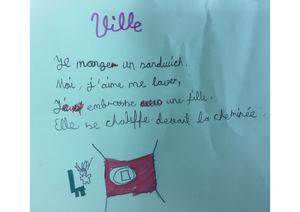 Ville
Je mange un sandwich.
Moi, j'aime me laver,
J' embrasse une fille.
Elle se chauffe devant la cheminée.